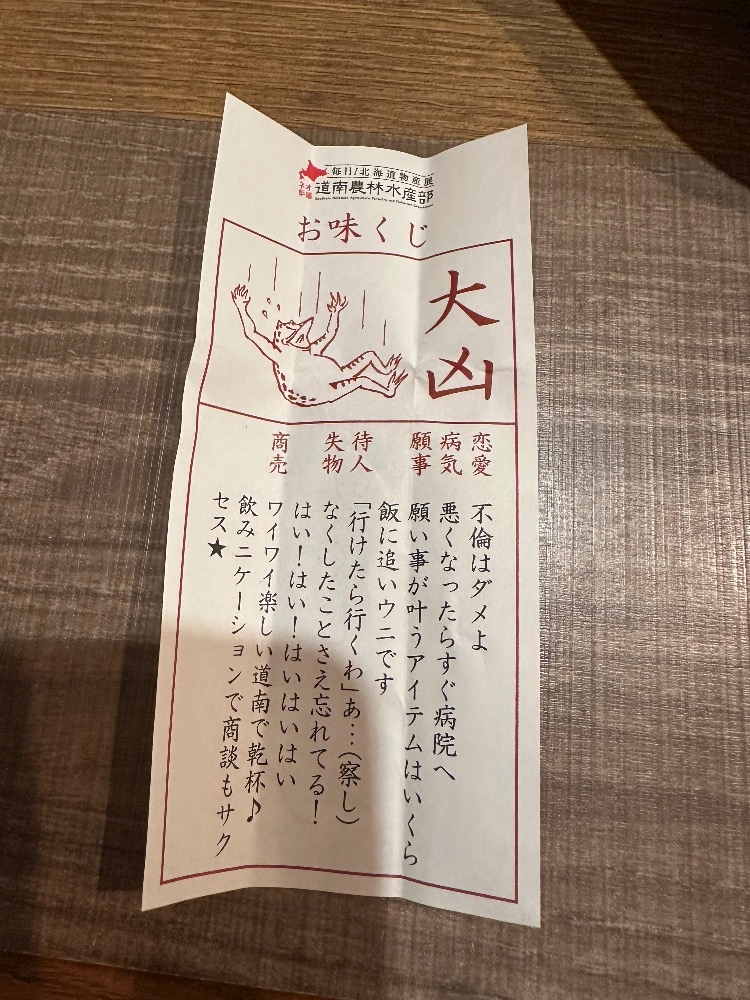 毎日!北海道物産展
ネオ
道南農林水産部
お味くじ
大凶
恋愛 不倫はダメよ
病気 悪くなったらすぐ病院へ
願事 願い事が叶うアイテムはいくら
飯に追いウニです
待人 「行けたら行くわ」あ…(察し)
失物 なくしたことさえ忘れてる!
はい!はい!はいはいはい
商売 ワイワイ楽しい道南で乾杯♪
飲みニケーションで商談もサク
セス★